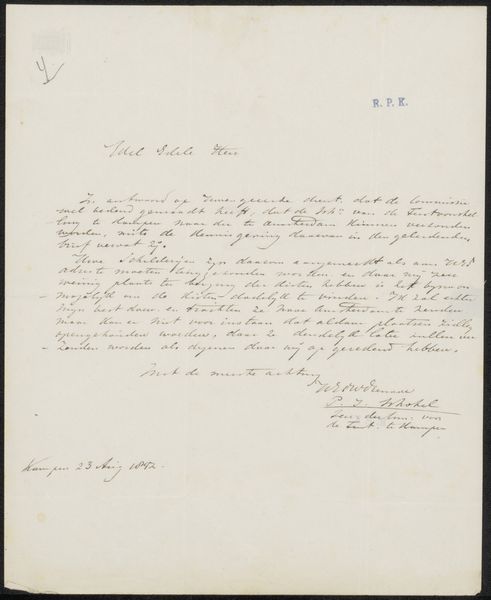 R. P. K.
Edel Heer
In antwoord op Uwe geeerde dient, dat de Commissie
met bedoeld gemaakt heeft, dat de van de Tentoonstel
ling te Kampen naar die te Amsterdam kunnen verzonden
worden, mits de kennisgeving daarvan in den geleidenden
brief vervat zij.
Uwe Schilderijen zijn daarom aangemerkt als aan UEd
adres te moeten teruggezonden worden en daar wij zeer
weinig plaats te berging der kisten hebben is het bijna on
mogelijk om de kisten dadelijk te vinden. Ik zal echter
mijn best doen en trachten ze naar Amsterdam te zenden
maar kan er niet voor instaan dat aldaar plaatsen zullen
opengehouden worden, daar ze dadelijk zullen ver
zonden worden als degenen daar wij op gerekend hebben.
Met de meeste achting
UEdDwDienaar
P. J.
voor
de Tent. te Kampen
Kampen 23 Aug 1892.